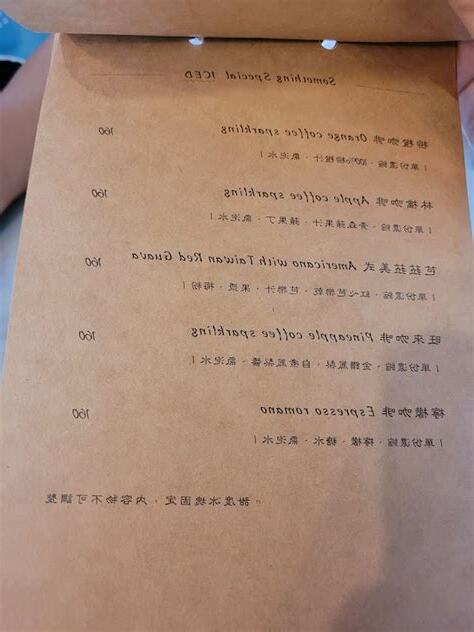 Something Special ICED
柳橙咖啡 Orange coffee sparkling 160
| 單份濃縮 · 100%柳橙汁 · 氣泡水 |
林檎咖啡 Apple coffee sparkling 160
| 單份濃縮 · 青森蘋果汁 · 蘋果丁 · 氣泡水 |
芭菈菈美式 Americano with Taiwan Red Guava 160
| 單份濃縮 · 紅心芭樂乾 · 芭樂汁 · 果漿 · 梅粉 |
旺來咖啡 Pineapple coffee sparkling 160
| 單份濃縮 · 金鑽鳳梨 · 自煮鳳梨醬 · 氣泡水 |
檸檬咖啡 Espresso romano 160
| 單份濃縮 · 檸檬 · 糖水 · 氣泡水 |
甜度冰塊固定，內容物不可調整